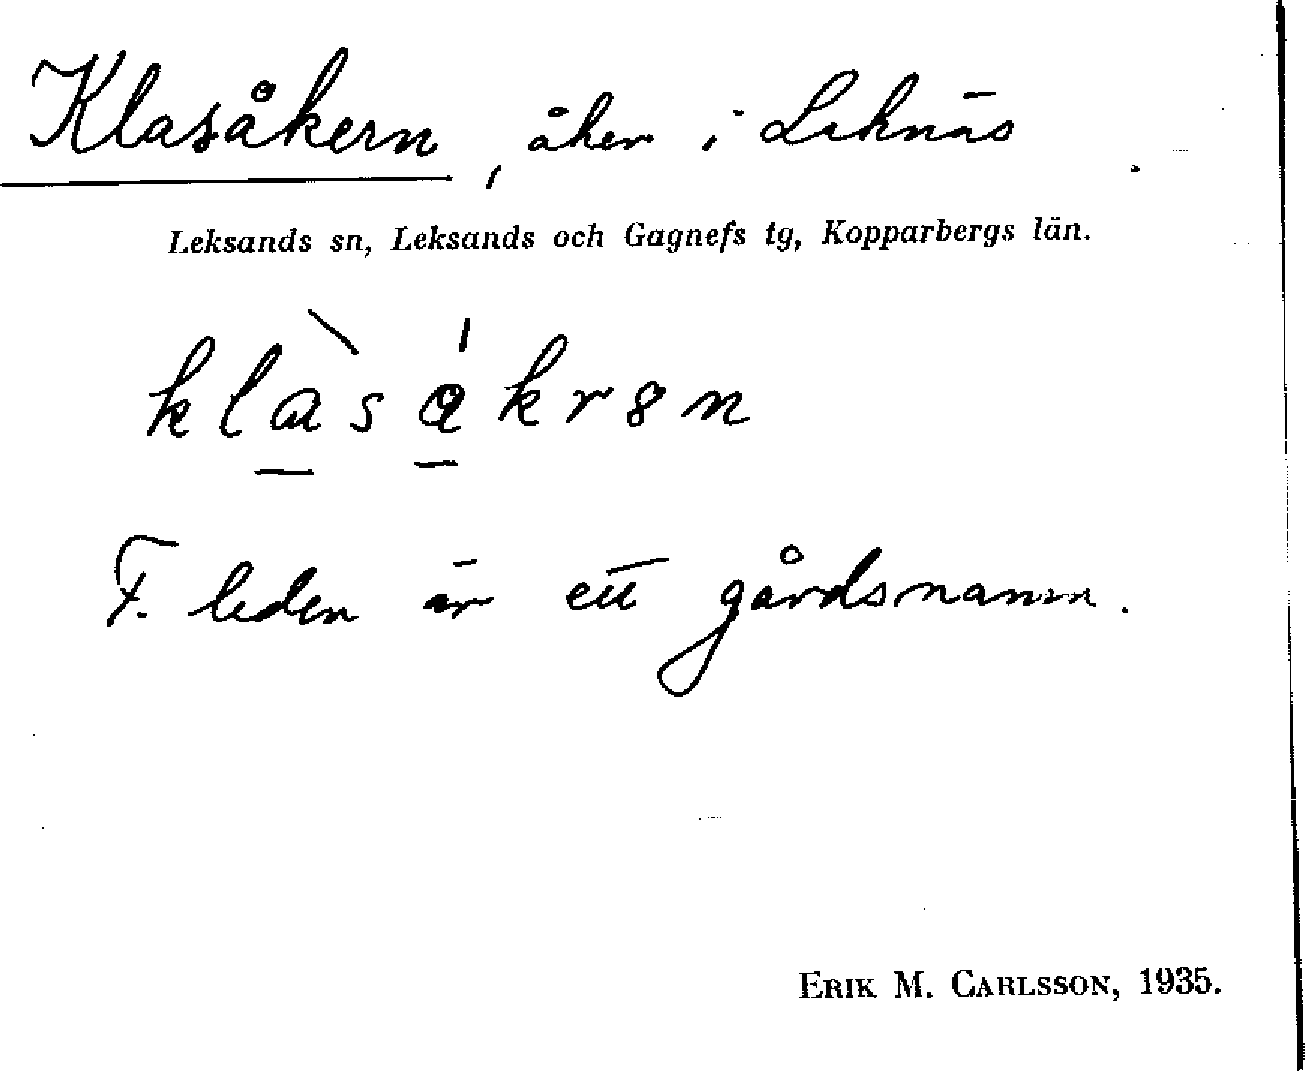 Klasåkern, åker i Leknäs.
Leksands sn, Leksands och Gagnefs tg, Kopparbergs län.
F. leden är ett gårdsnamn.
ERIK M. CARLSSON, 1935.